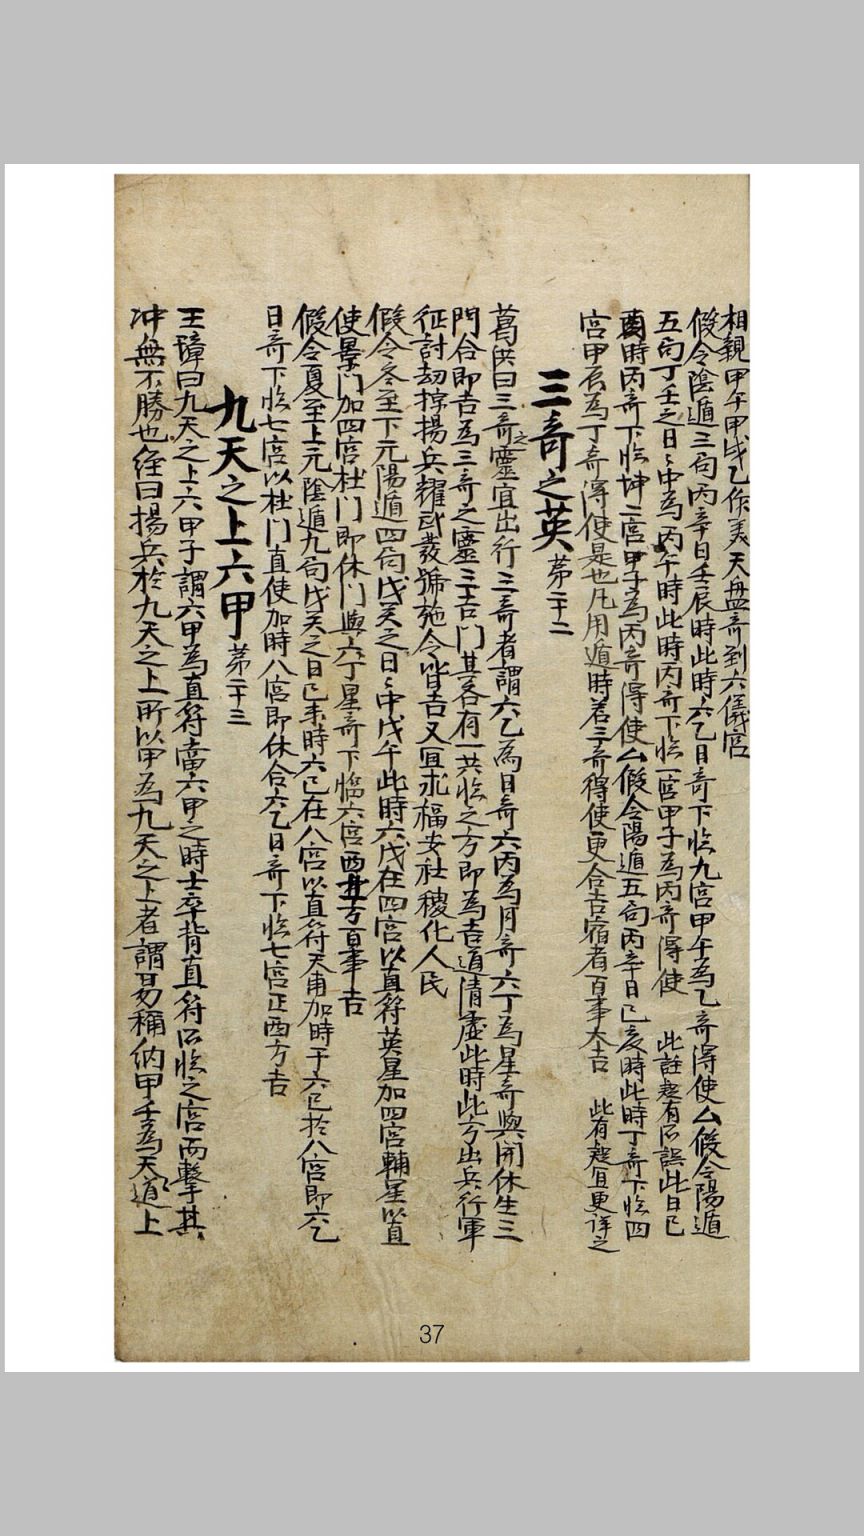 相親甲午甲戌乙作美天盤奇到六儀宮
假令陰遁三局丙辛日壬辰時此時六乙日奇下临九宮甲午為乙奇淂使厶假令陽遁
五局丁壬之日〻中為丙午時此時丙奇下临一宮甲子為丙奇淂使 此註疑有所誤此日已
時丙奇下临坤二宮甲子為丙奇淂使厶假令陽遁五局丙辛日己亥時此時丁奇下临四
宮甲辰為丁奇淂使是也凡用遁時若三奇得使更合吉宿者百事大吉 此有疑宜更詳之
三奇之英 苐二十二
葛洪曰三奇之靈宜出行三奇者謂六乙為日奇六丙為月奇六丁為星奇與開休生三
門合即吉為三奇之靈三吉门其各有一共临之方即為吉道清虛此時此方出兵行軍
征討刧掠揚兵耀武發號施令皆吉又宜求福安社稷化人民
假令冬至下元陽遁四局戊癸之日〻中戊午此時六戊在四宮以直符英星加四宮輔星以直
使景门加四宮杜门即休门與六丁星奇下临六宮西北方百事吉
假令夏至上元陰遁九局戊癸之日己未時六己在八宮以直符天甫加時干六己於八宮即六乙
日奇下临七宮以杜门直使加時八宮即休合六乙日奇下临七宮正西方吉
九天之上六甲 苐二十三
王璋曰九天之上六甲子謂六甲為直符當六甲之時士卒背直符所临之宮而擊其
冲無不勝也經曰揚兵於九天之上所以甲為九天之上者謂易稱納甲壬為天道上
37